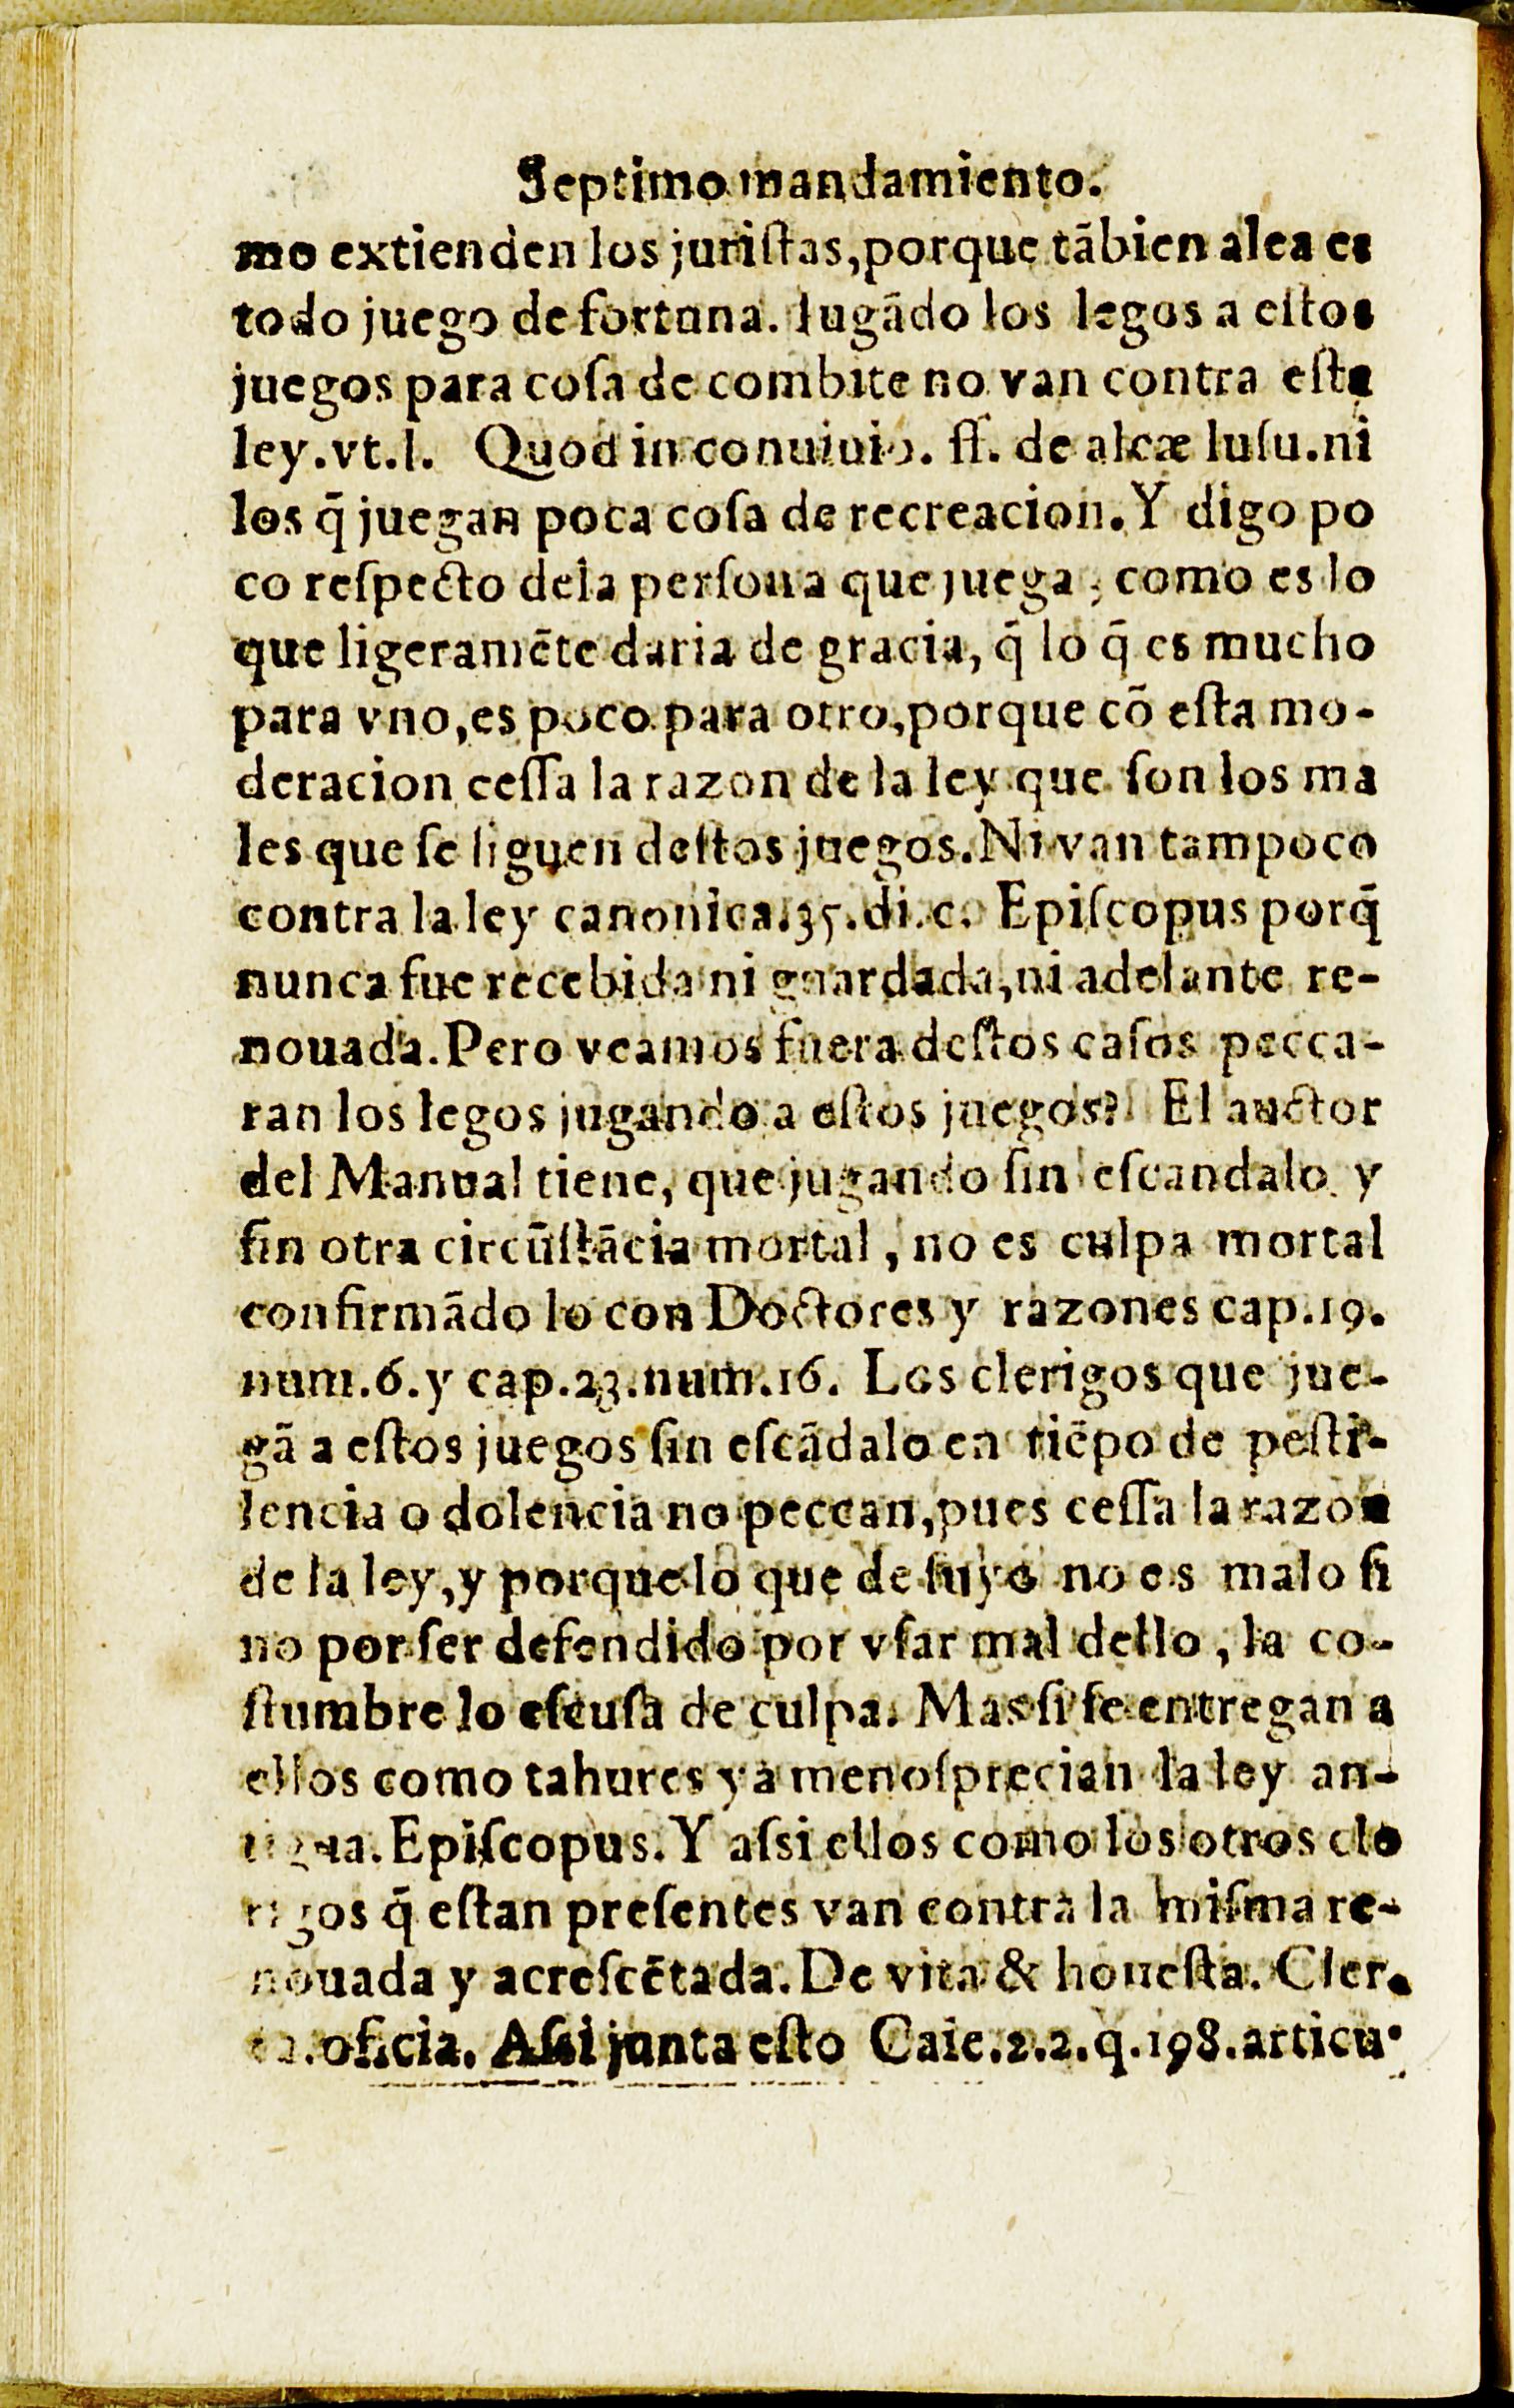 Septimo mandamiento.
mo extienden los juriſtas,porque tãbien alea es
todo juego de fortuna. Iugãdo los legos a eſtos
juegos para coſa de combite no van contra eſta
ley.vt.l. Quod in conuiuio. ff. de aleæ luſu.ni
los q̃ juegan poca coſa de recreacion.Y digo po
co reſpecto dela perſoua que juega, como es lo
que ligeramẽte daria de gracia, q̃ lo q̃ es mucho
para vno,es poco para otro,porque cõ eſta mo-
deracion ceſſa la razon de la ley que ſon los ma
les que ſe ſiguen deſtos juegos.Ni van tampoco
contra la ley canonica.35.di.c. Epiſcopus porq̃
nunca fue recebida ni guardada,ni adelante re-
nouada.Pero veamos fuera deſtos caſos pecca-
ran los legos jugando a eſtos juegos? El auctor
del Manual tiene, que jugando ſin eſcandalo y
ſin otra circũſtãcia mortal, no es culpa mortal
confirmãdo lo con Doctores y razones cap.19.
num.6.y cap.23.num.16. Los clerigos que jue-
gã a eſtos juegos ſin eſcãdalo en tiẽpo de peſti-
lencia o dolencia no peccan,pues ceſſa la razon
de la ley,y porque lo que de ſuyo no es malo ſi
no por ſer defendido por vſar mal dello, la co-
ſtumbre lo eſcuſa de culpa. Mas ſi ſe entregan a
ellos como tahures ya menoſprecian la ley an-
tigua.Epiſcopus.Y aſsi ellos como los otros cle
rigos q̃ eſtan preſentes van contra la miſma re-
nouada y acreſcẽtada.De vita & honeſta. Cler.
oficia. Aſsi junta eſto Caie.2.2.q.198.articu-